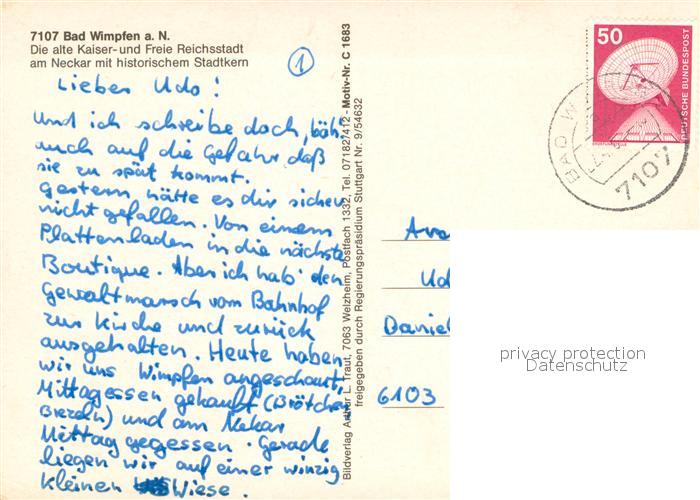 7107 Bad Wimpfen a. N.
Die alte Kaiser- und Freie Reichsstadt
am Neckar mit historischem Stadtkern
1
Lieber Udo!
Und ich schreibe doch, bäh!
auch auf die Gefahr, daß
sie zu spät kommt.
Gestern hätte es dir sicher
nicht gefallen. Von einem
Plattenladen in die nächste
Boutique. Aber ich hab' den
Gewaltmarsch vom Bahnhof
zur Kirche und zurück
ausgehalten. Heute haben
wir uns Wimpfen angeschaut,
Mittagessen gekauft (Brötchen,
Brezeln) und am Nekar
Mittag gegessen. Gerade
liegen wir auf einer winzig
kleinen Wiese.
Bildverlag Arthur L. Traut, 7063 Welzheim, Postfach 1332, Tel. 07182/412 - Motiv-Nr. C 1683
freigegeben durch Regierungspräsidium Stuttgart Nr. 9/54632
50
DEUTSCHE BUNDESPOST
BAD W
7107
Ud
Daniel
6103
privacy protection
Datenschutz